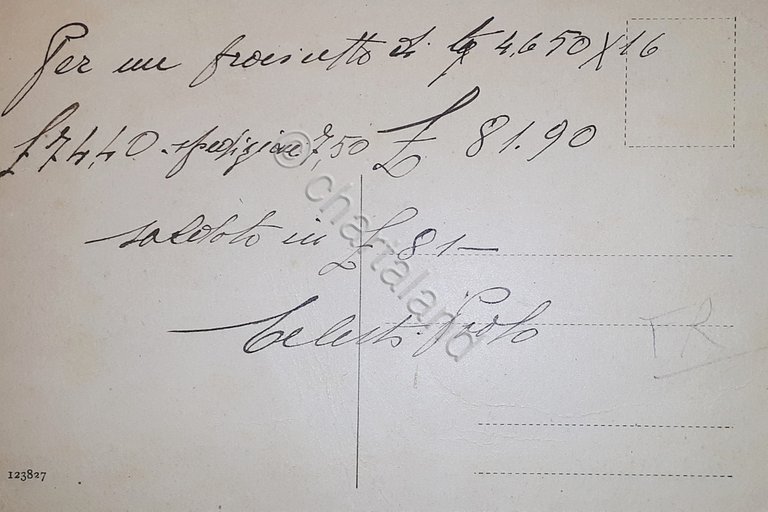 Per un prosciutto di Kg 4,650 X 16
£ 74,40 spedizione 7,50 £ 81.90
saldato in £ 81—
Celesti Paolo
TR
123827
© chartaland